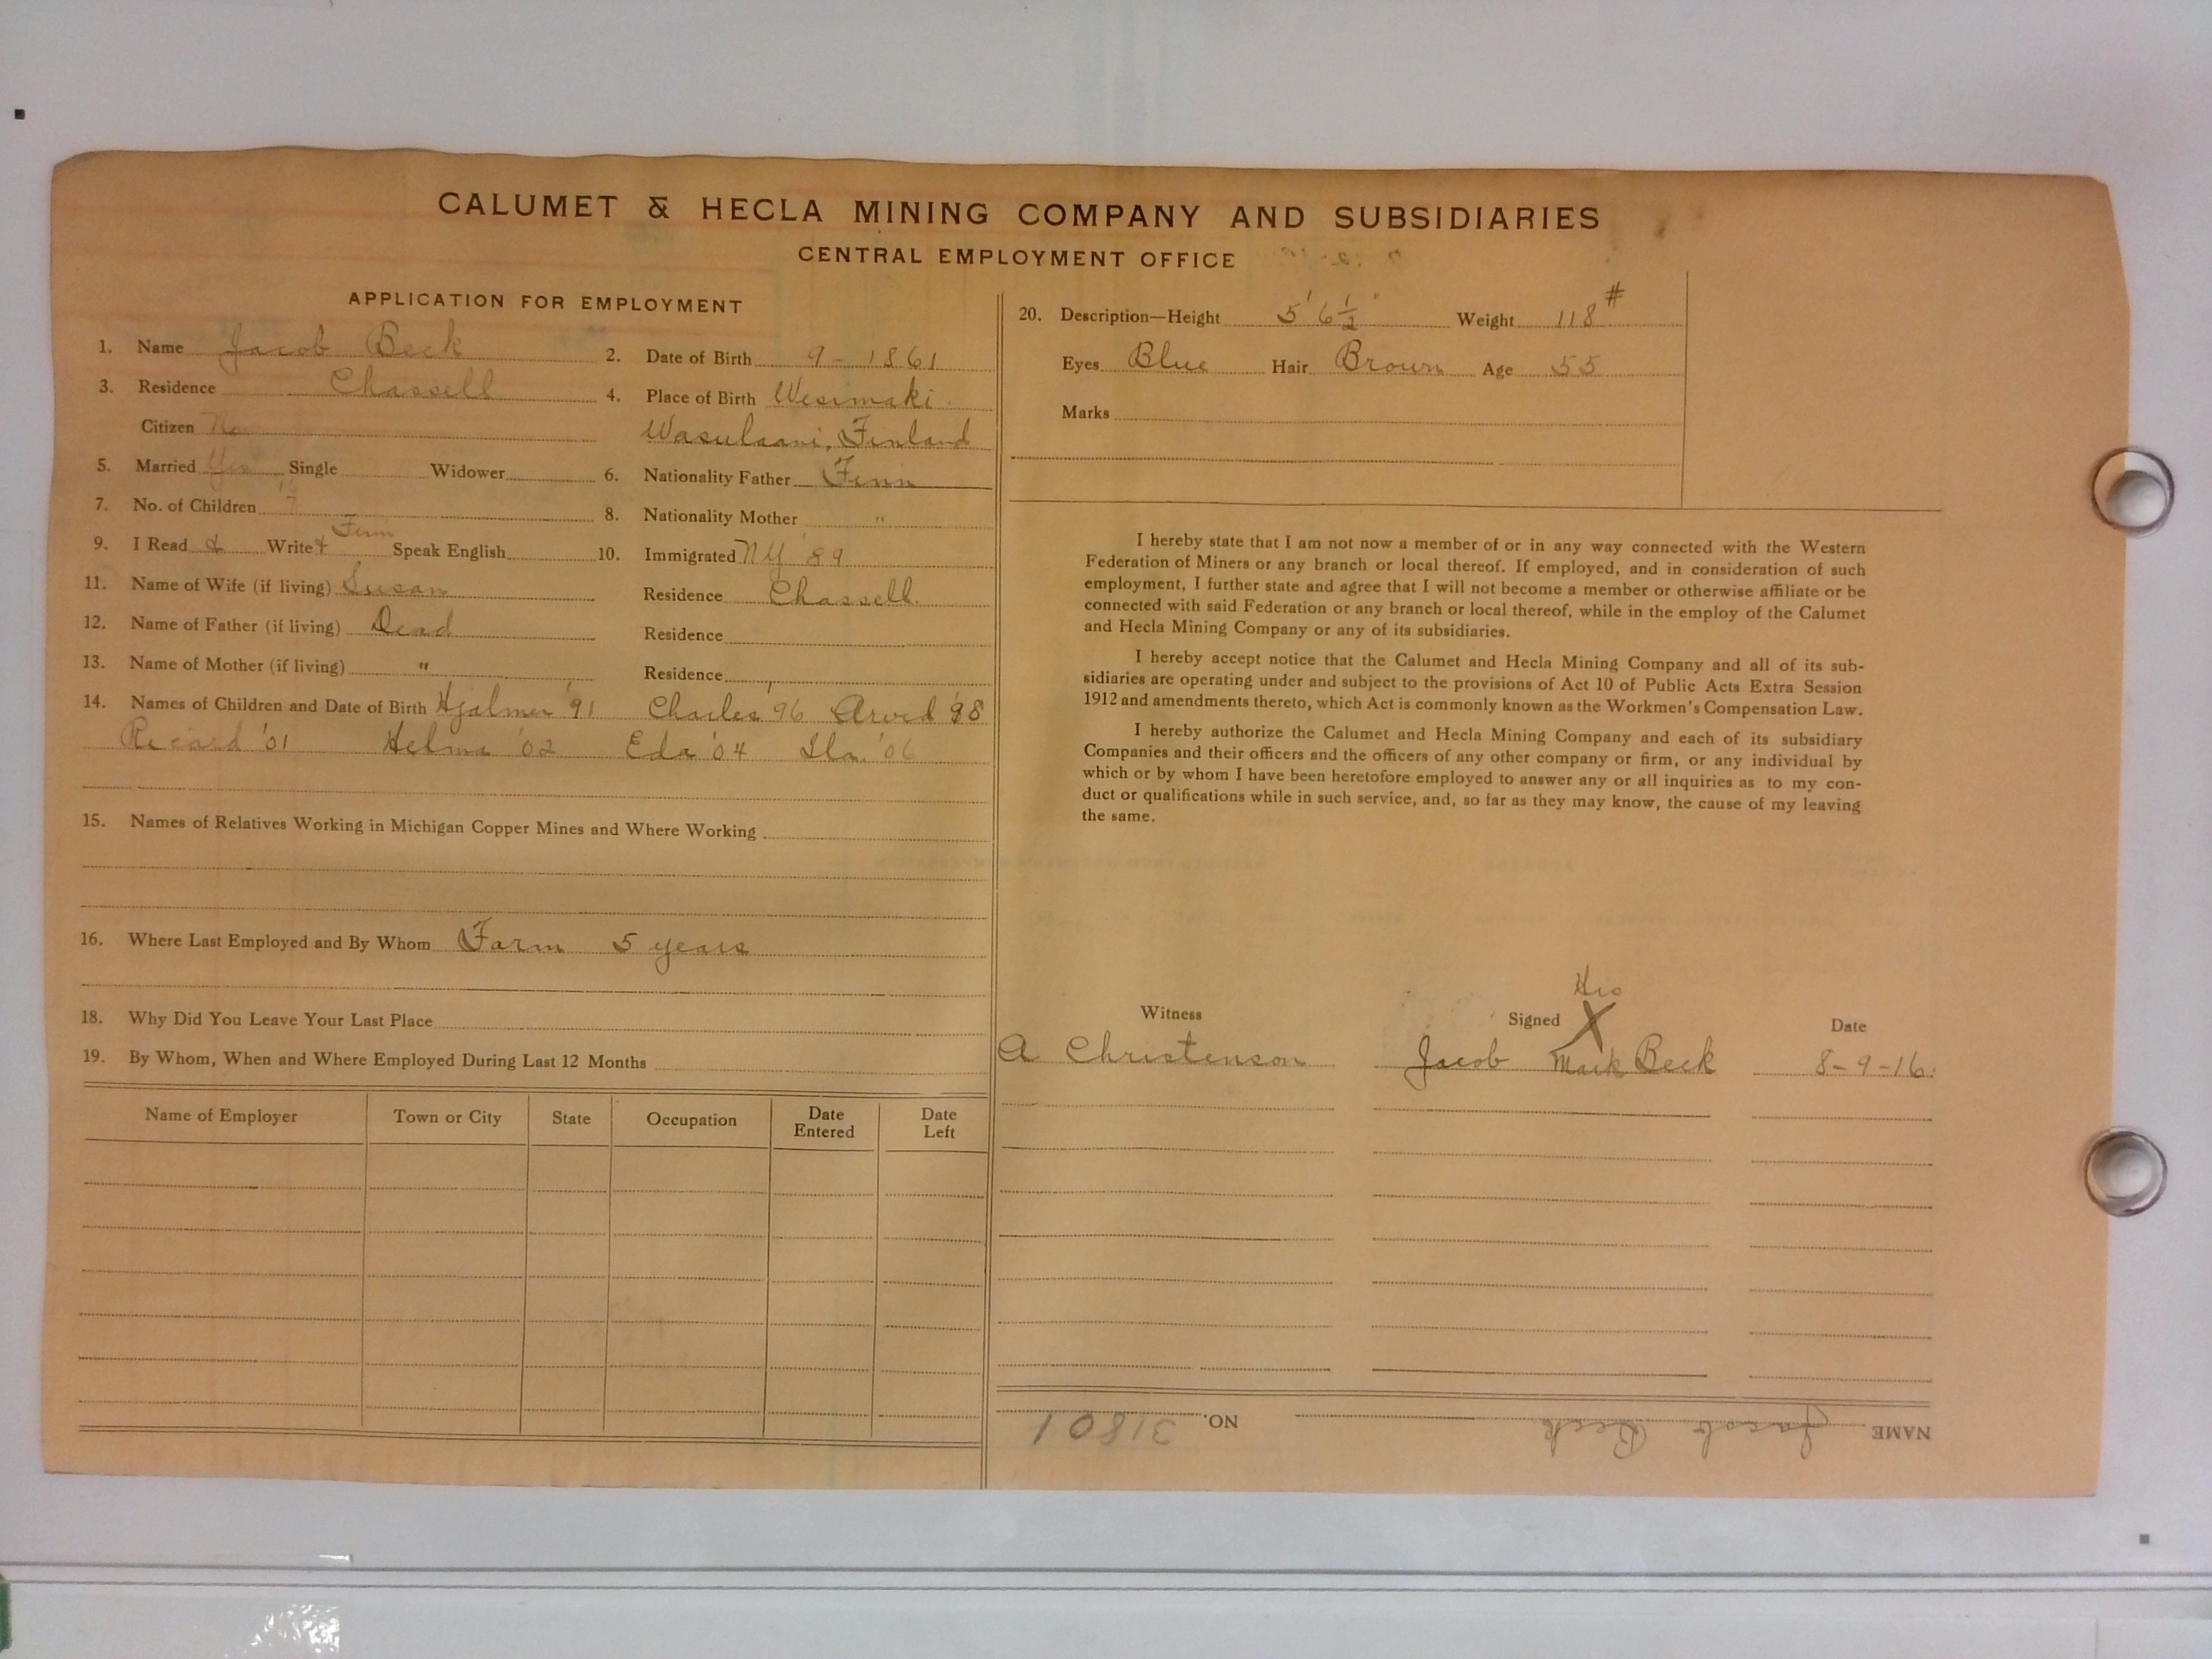 CALUMET & HECLA MINING COMPANY AND SUBSIDIARIES
CENTRAL EMPLOYMENT OFFICE
APPLICATION FOR EMPLOYMENT
1. Name Jacob Beck 2. Date of Birth 9-1861
3. Residence Chassell 4. Place of Birth Wesimaki
Citizen No Wasulaani, Finland
5. Married Yes Single Widower 6. Nationality Father Finn
7. No. of Children 7 8. Nationality Mother "
9. I Read & Write & Finn Speak English 10. Immigrated NY '89
11. Name of Wife (if living) Susan Residence Chassell
12. Name of Father (if living) Dead Residence
13. Name of Mother (if living) " Residence
14. Names of Children and Date of Birth Hjalmer '91 Charles '96 Arvid '98
Recard '01 Helma '02 Eda '04 Ila '06
15. Names of Relatives Working in Michigan Copper Mines and Where Working
16. Where Last Employed and By Whom Farm 5 years
18. Why Did You Leave Your Last Place
19. By Whom, When and Where Employed During Last 12 Months
Name of Employer Town or City State Occupation Date Entered Date Left
20. Description—Height 5' 6 1/2" Weight 118 #
Eyes Blue Hair Brown Age 55
Marks
I hereby state that I am not now a member of or in any way connected with the Western
Federation of Miners or any branch or local thereof. If employed, and in consideration of such
employment, I further state and agree that I will not become a member or otherwise affiliate or be
connected with said Federation or any branch or local thereof, while in the employ of the Calumet
and Hecla Mining Company or any of its subsidiaries.
I hereby accept notice that the Calumet and Hecla Mining Company and all of its sub-
sidiaries are operating under and subject to the provisions of Act 10 of Public Acts Extra Session
1912 and amendments thereto, which Act is commonly known as the Workmen's Compensation Law.
I hereby authorize the Calumet and Hecla Mining Company and each of its subsidiary
Companies and their officers and the officers of any other company or firm, or any individual by
which or by whom I have been heretofore employed to answer any or all inquiries as to my con-
duct or qualifications while in such service, and, so far as they may know, the cause of my leaving
the same.
His
Witness Signed X Date
A Christenson Jacob Mark Beck 8-9-16.
NAME Jacob Beck NO. 31801